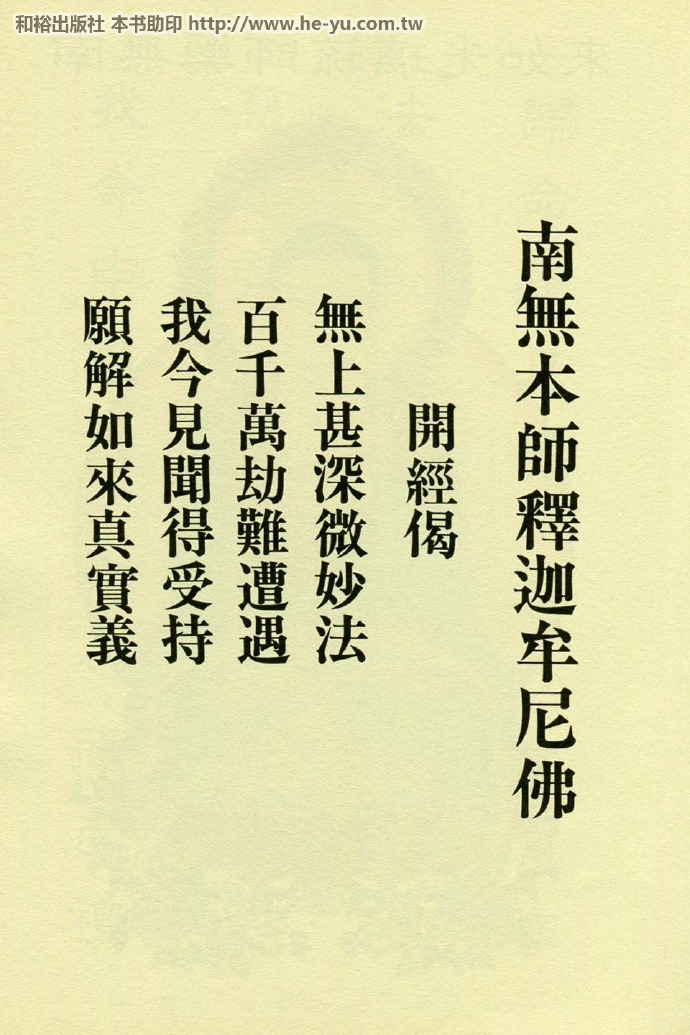 和裕出版社 本书助印 http://www.he-yu.com.tw
南無本師釋迦牟尼佛
開經偈
無上甚深微妙法
百千萬劫難遭遇
我今見聞得受持
願解如來真實義